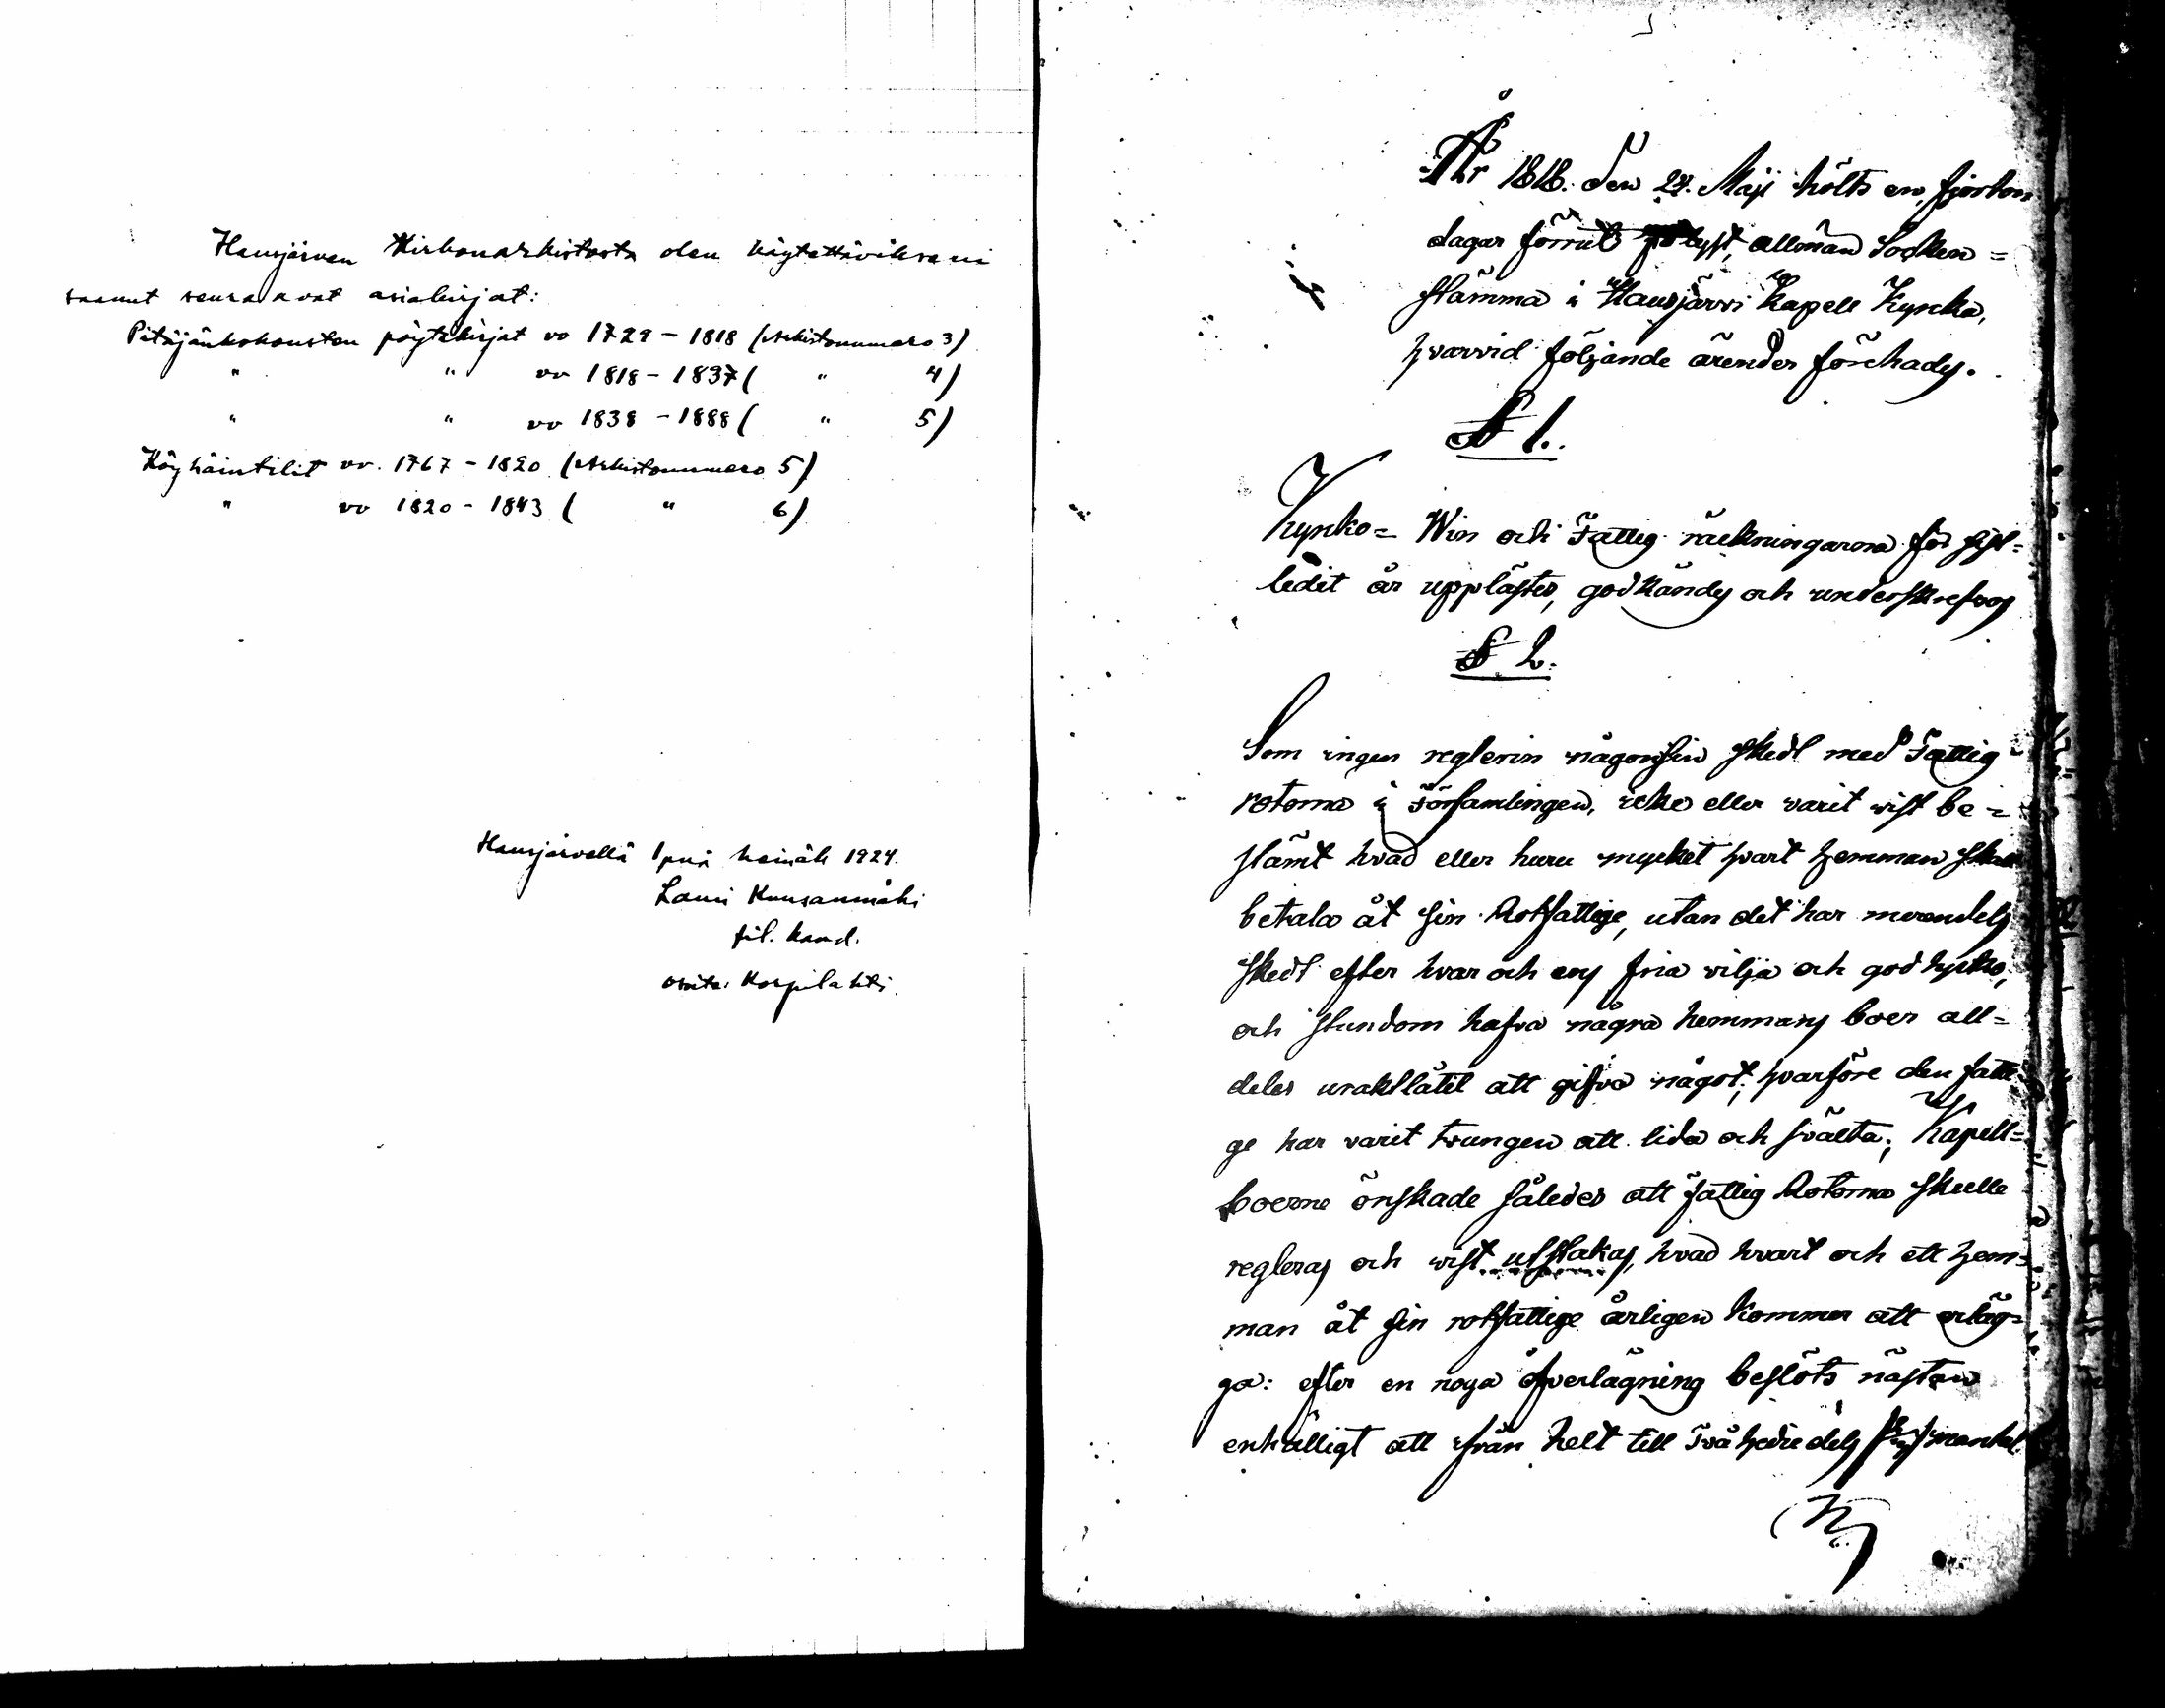 Hausjärven Kirkonarkistosta olen käytettävikseni
saanut seuraavat asiakirjat:
Pitäjänkokousten pöytäkirjat vv 1729 - 1818 (Arkistonumero 3)
" " vv 1818 - 1837 ( " 4)
" " vv 1838 - 1888 ( " 5)
Köyhäintilit vv. 1767 - 1820 (Arkistonumero 5)
" vv 1820 - 1843 ( " 6)
Hausjärvellä 1 pnä heinäk 1924.
Lauri Kuusanmäki
fil. kand.
osoite: Korpilahti.
År 1818. den 24. Maji hölts en, fjorton
dagar förrut pålyst, allmän Socken =
stämma i Hausjärvi Kapell Kyrka,
hvarvid följande ärender förehades.
§ 1.
Kyrko = Win och Fattig räckningarna för sist =
ledit år upplästes, godkändes och underskrefvos
§ 2.
Som ingen reglerin någonsin skedt med Fattig =
rotorna i Församlingen, icke eller varit vist be =
stämt hvad eller huru mycket hvart hemman skall
betala åt sin Rotfattige, utan det har merendels
skedt efter hvar och ens fria vilja och godtycke,
och stundom hafva några hemmans boer all =
deles uraktlåtit att gifva något; hvarföre den fatti
ge har varit tvungen att lida och svälta; Kapell =
boerne önskade således att fattig Rotorna skulle
regleras och vist utstakas, hvad hvart och ett hem =
man åt sin rotfattige årligen kommer att erläg =
ga: efter en noga öfverlägning beslöts nästan
enhälligt att ifrån helt till två tredie dels mantal